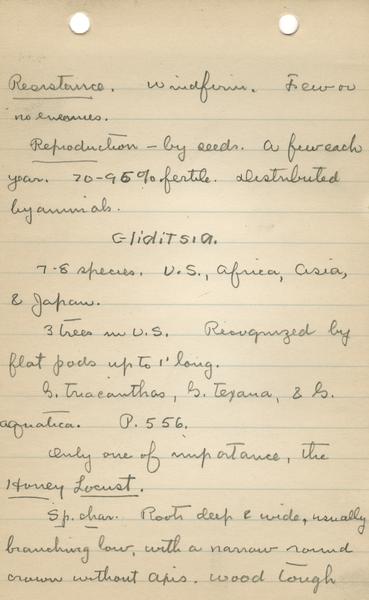 Resistance. Windfirm. Few or
no enemies.
Reproduction – by seeds. A few each
year. 70-95% fertile. Distributed
by animals.
Gliditsia.
7-8 species. U.S., Africa, Asia,
& Japan.
3 trees in U.S. Recognized by
flat pods up to 1' long.
G. triacanthos, G. Texana, & G.
aquatica. P. 556.
Only one of importance, the
Honey Locust.
Sp. char. Roots deep & wide, usually
branching low, with a narrow round
crown without axis. Wood tough